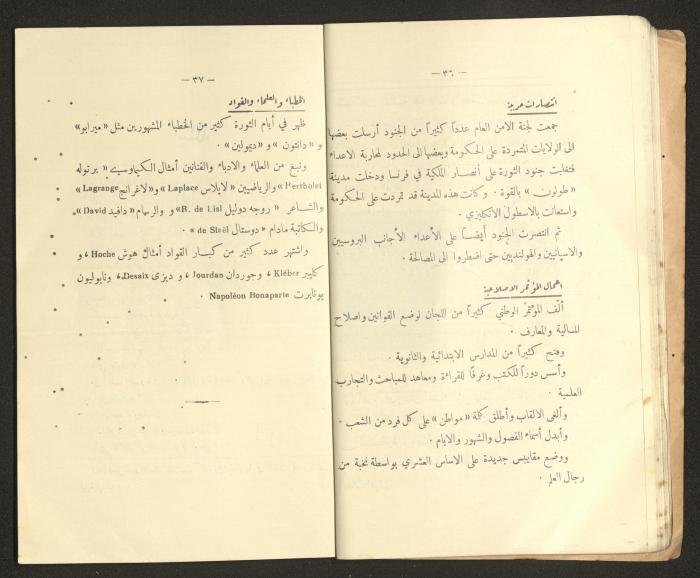 — ٣٦ —
انتصارات حربية
جمعت لجنة الامن العام عدداً كثيراً من الجنود أرسلت بعضها
الى الولايات المتمردة على الحكومة وبعضها الى الحدود لمحاربة الاعداء
فتغلبت جنود الثورة على أنصار الملكية في فرنسا ودخلت مدينة
« طولون » بالقوة . وكانت هذه المدينة قد تمردت على الحكومة
واستعانت بالاسطول الانكليزي .
ثم انتصرت الجنود أيضاً على الأعداء الأجانب البروسيين
والاسپانيين والهولنديين حتى اضطروا الى المصالحة .
اعمال المؤتمر الاصلاحية
ألّف المؤتمر الوطني كثيراً من اللجان لوضع القوانين واصلاح
المالية والمعارف .
وفتح كثيراً من المدارس الابتدائية والثانوية .
وأسس دوراً للكتب وغرفاً للقراءة ومعاهد للمباحث والتجارب
العلمية .
وألغى الالقاب وأطلق كلمة « مواطن » على كل فرد من الشعب .
وأبدل أسماء الفصول والشهور والايام .
ووضع مقاييس جديدة على الاساس العشري بواسطة نخبة من
رجال العلم .
— ٣٧ —
الخطباء والعلماء والقواد
ظهر في أيام الثورة كثير من الخطباء المشهورين مثل « ميرابو »
و « دانتون » و « ديمولين » .
ونبغ من العلماء والادباء والفنانين أمثال الكيماويين « برتوله
Bertholet » والرياضيين « لابلاس Laplace » و « لاغرانج Lagrange »
والشاعر « روجه دوليل R. de Lisl » و والرسام « دافيد David » .
والكاتبة مادام « دوستال de Staël » .
واشتهر عدد كثير من كبار القواد أمثال هوش Hoche ، و
كليبر Kléber ، وجوردان Jourdan ، و ديزى Desaix ، ونابوليون
بونابرت Napoléon Bonaparte .